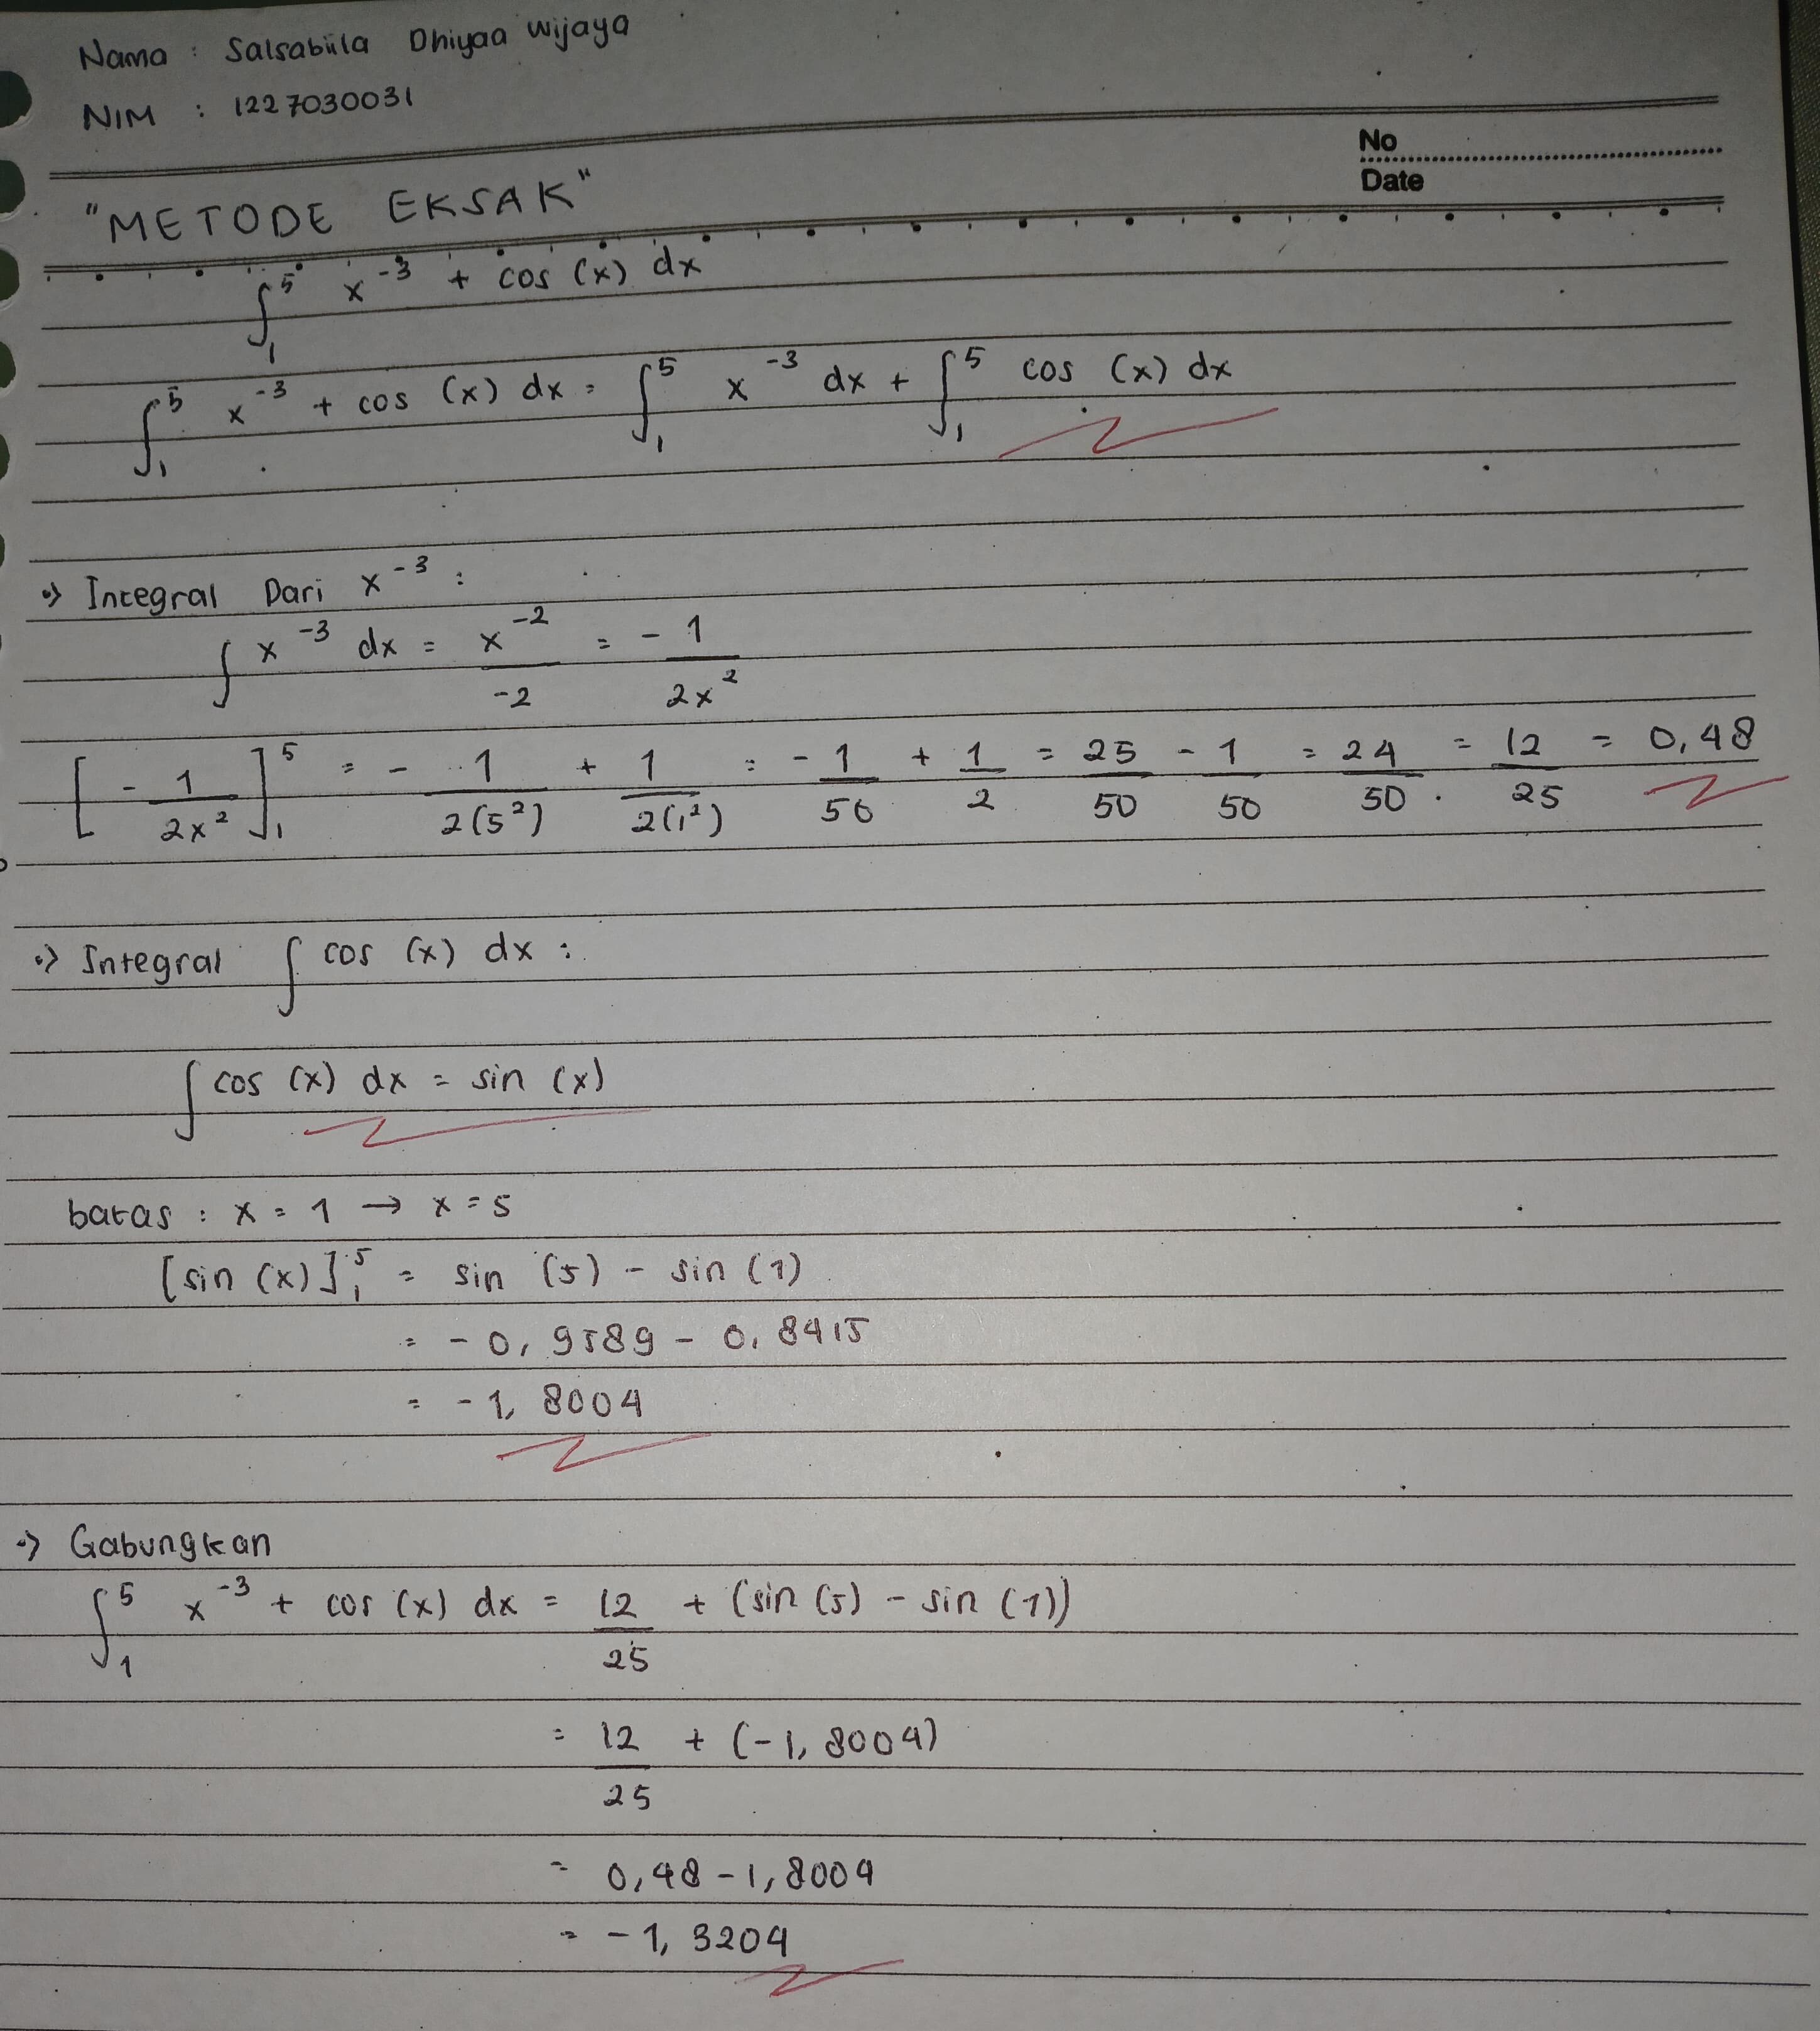 Nama : Salsabiila Dhiyaa Wijaya
NIM : 1227030031
No
Date
"METODE EKSAK"
∫₁⁵ x⁻³ + cos (x) dx
∫₁⁵ x⁻³ + cos (x) dx = ∫₁⁵ x⁻³ dx + ∫₁⁵ cos (x) dx
•> Integral Dari x⁻³ :
∫ x⁻³ dx = x⁻²/-2 = - 1/2x²
[- 1/2x²]₁⁵ = - 1/2(5²) + 1/2(1²) = - 1/50 + 1/2 = 25/50 - 1/50 = 24/50 = 12/25 = 0,48
•> Integral ∫ cos (x) dx :
∫ cos (x) dx = sin (x)
batas : x = 1 → x = 5
[sin (x)]₁⁵ = sin (5) - sin (1)
= - 0,9589 - 0,8415
= - 1,8004
•> Gabungkan
∫₁⁵ x⁻³ + cos (x) dx = 12/25 + (sin (5) - sin (1))
= 12/25 + (-1,8004)
= 0,48 - 1,8004
= - 1,3204